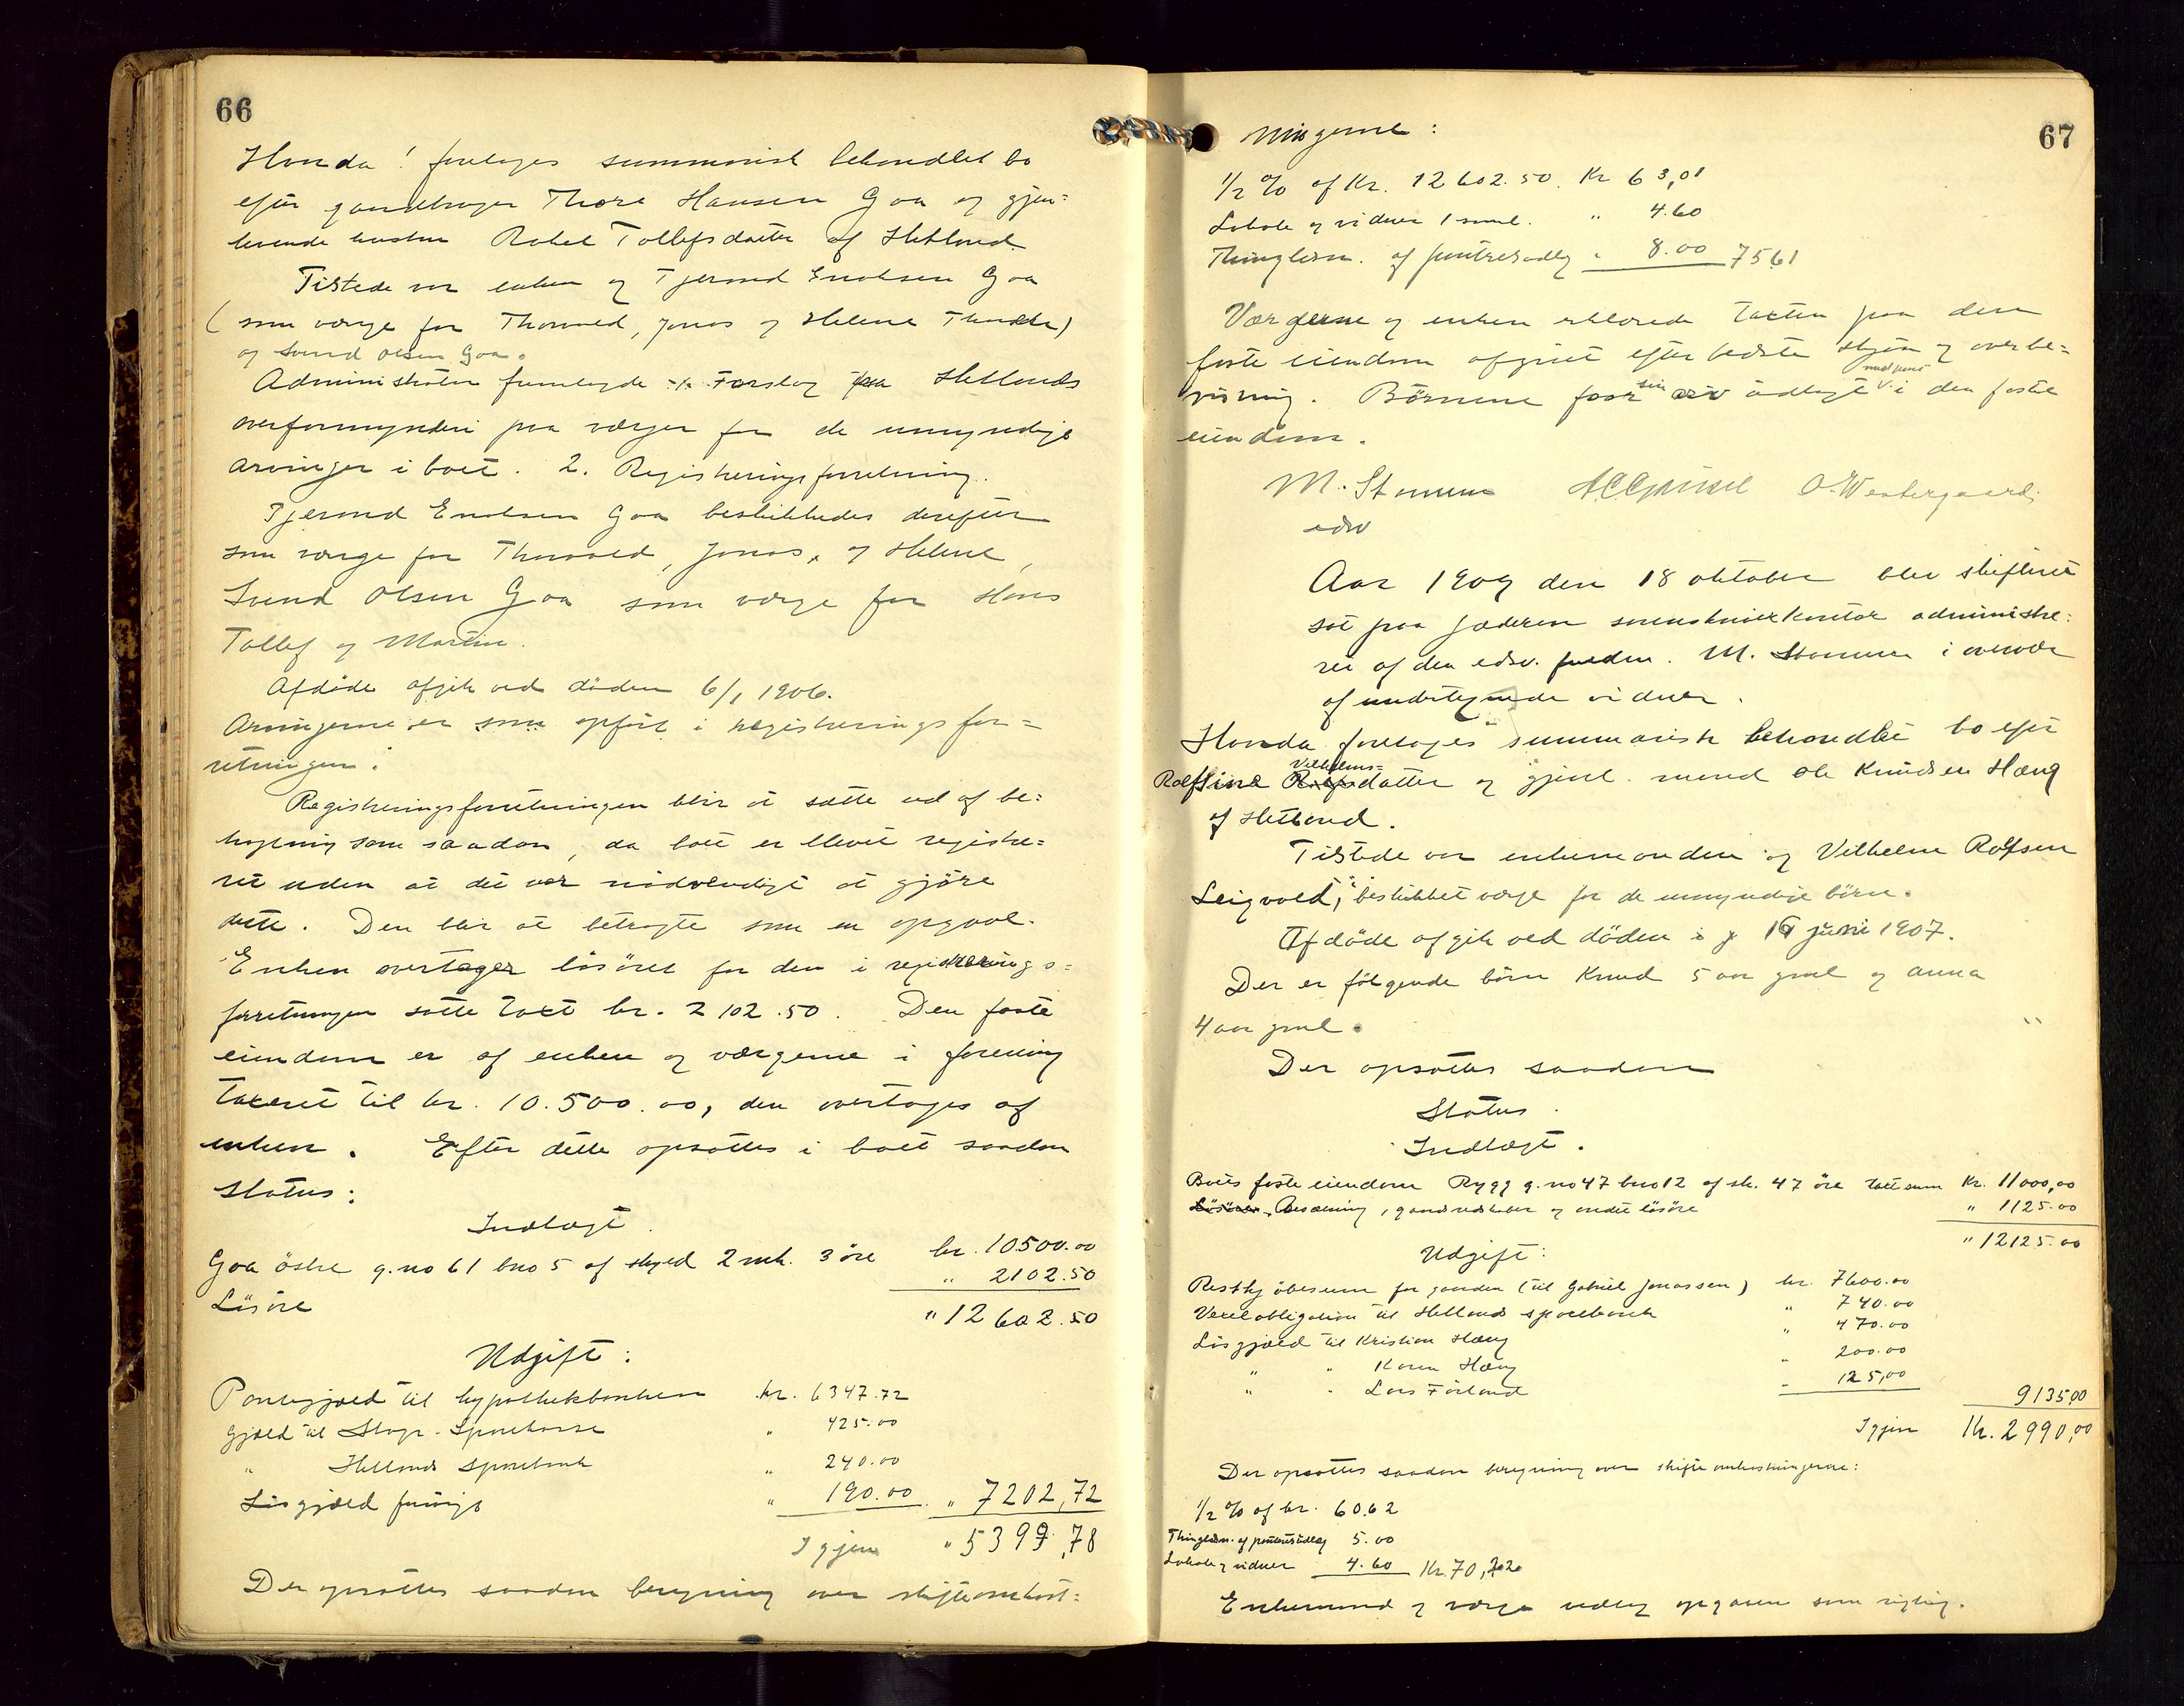 66
Hvorda! foretoges summarisk behandlet bo
efter gaardbruger Thore Hansen Goa og gjen=
levende hustru Rakel Tollefsdatter af Hetland.
Tilstede var enken og Tjerand Enoksen Goa
(som værge for Thorvald, Jonas og Helene Thoredtr)
og Svend Olsen Goa.
Administrator fremlagde 1. Forslag fra Hetlands
overformynderi paa værger for de umyndige
arvinger i boet. 2. Registreringsforretning.
Tjerand Enoksen Goa beskikkedes derefter
som værge for Thorvald, Jonas, og Helene,
Svend Olsen Goa som værge for Hans
Tollef og Martin.
Afdöde afgik ved döden 6/1 1906.
Arvingerne er som opfört i registreringsfor=
retningen.
Registreringsforretningen blir at sætte ud af be=
tragtning som saadan, da boet er blevet registre=
ret uden at det var nödvendigt at gjöre
dette. Den blir at betragte som en opgave.
Enken overtager lösöret for den i registrerings=
forretningen satte taxt kr. 2102.50. Den faste
eiendom er af enken og værgerne i forening
taxeret til kr. 10.500.00, den overtages af
enken. Efter dette opsattes i boet saadan
Status:
Indtægt.
Goa östre g.no 61 bno 5 af skyld 2 mk. 3 öre kr. 10500.00
Lösöre " 2102.50
" 12602.50
Udgift:
Pantegjæld til hypothekbanken kr. 6347.72
Gjæld til Stavgr. Sparekasse " 425.00
" Hetlands Sparebank " 240.00
Lösgjæld forövrigt " 190.00 " 7202,72
Igjen " 5399,78
Der opsattes saadan beregning over skifteomkost=
67
ningerne:
1/2 % af Kr. 12602.50. Kr 63,01
Lokale og vidner 1 saml. " 4.60
Thinglæsn. af panteudlæg " 8.00 7561
Værgerne og enken erklærede taxten paa den
faste eiendom afgivet efter bedste skjön og overbe=
visning. Börnene faar sin arv udlagt med pant i den faste
eiendom.
M. Stamnes O. Westergaard.
edsv
Aar 1907 den 18 oktober blev skifteret
sat paa Jæderen sorenskriverkontor administre=
ret af den edsv. fuldm. M. Stamnes i overvær
af undertegnede vidner.
Hvorda foretoges summarisk behandlet bo efter
Rolfsine Vilhelms=datter og gjenl. mand Ole Knudsen Hæng
af Hetland.
Tilstede var enkemanden og Vilhelm Rolfsen
Leigvold, beskikket værge for de umyndige börn.
Afdöde afgik ved döden 16 juni 1907.
Der er fölgende börn Knud 5 aar gml og Anna
4 aar gml.
Der opsattes saadan
Status.
Indtægt.
Boets faste eiendom Rygg g.no 47 bno 12 af sk. 47 öre taxtsum Kr. 11000,00
Besætning, gaardsredskaber og andet lösöre " 1125.00
" 12125.00
Udgift:
Restkjöbesum for gaarden (til Gabriel Jonassen) kr. 7600.00
Vexelobligation til Hetlands sparebank " 740.00
Lösgjæld til Kristian Hæng " 470.00
" " Karen Hæng " 200.00
" " Lars Förland " 125,00
9135,00
Igjen Kr. 2990,00
Der opsattes saadan beregning over skifteomkostningerne:
1/2 % af kr. 60.62
Thinglæsn. af panteudlæg 5.00
Lokale og vidner 4.60 Kr. 70,22
Enkemand og værge vedtog opgaven som rigtig.